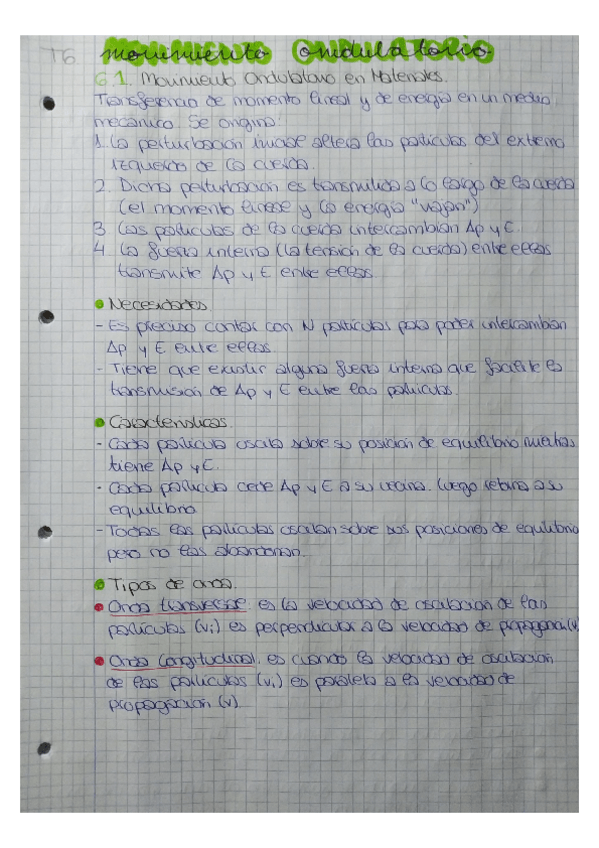 T6 movimiento ondulatorio.
6.1. Movimiento Ondulatorio en Materiales.
Transferencia de momento lineal y de energía en un medio
mecánico. Se origina:
1. La perturbación inicial altera las partículas del extremo
izquierdo de la cuerda.
2. Dicha perturbación es transmitida a lo largo de la cuerda
(el momento lineal y la energía "viajan")
3 Las partículas de la cuerda intercambian Δp y E.
4. La fuerza interna (la tensión de la cuerda) entre ellas
transmite Δp y E entre ellas.
Necesidades.
- Es preciso contar con N partículas para poder intercambiar
Δp y E entre ellas.
- Tiene que existir alguna fuerza interna que facilite la
transmisión de Δp y E entre las partículas.
Características.
- Cada partícula oscila sobre su posición de equilibrio mientras
tiene Δp y E.
- Cada partícula cede Δp y E a su vecina. Luego retorna a su
equilibrio
- Todas las partículas oscilan sobre sus posiciones de equilibrio
pero no las abandonan.
Tipos de onda.
Onda transversal: es la velocidad de oscilación de las
partículas (vi) es perpendicular a la velocidad de propagana (v)
Onda longitudinal: es cuando la velocidad de oscilación
de las partículas (vi) es paralela a la velocidad de
propagación (v).